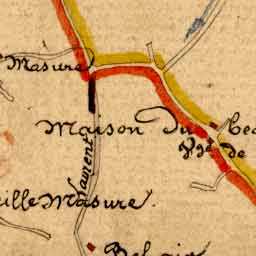 Masure
Maison Du
de
Laurent
eille Masure.
Bel air